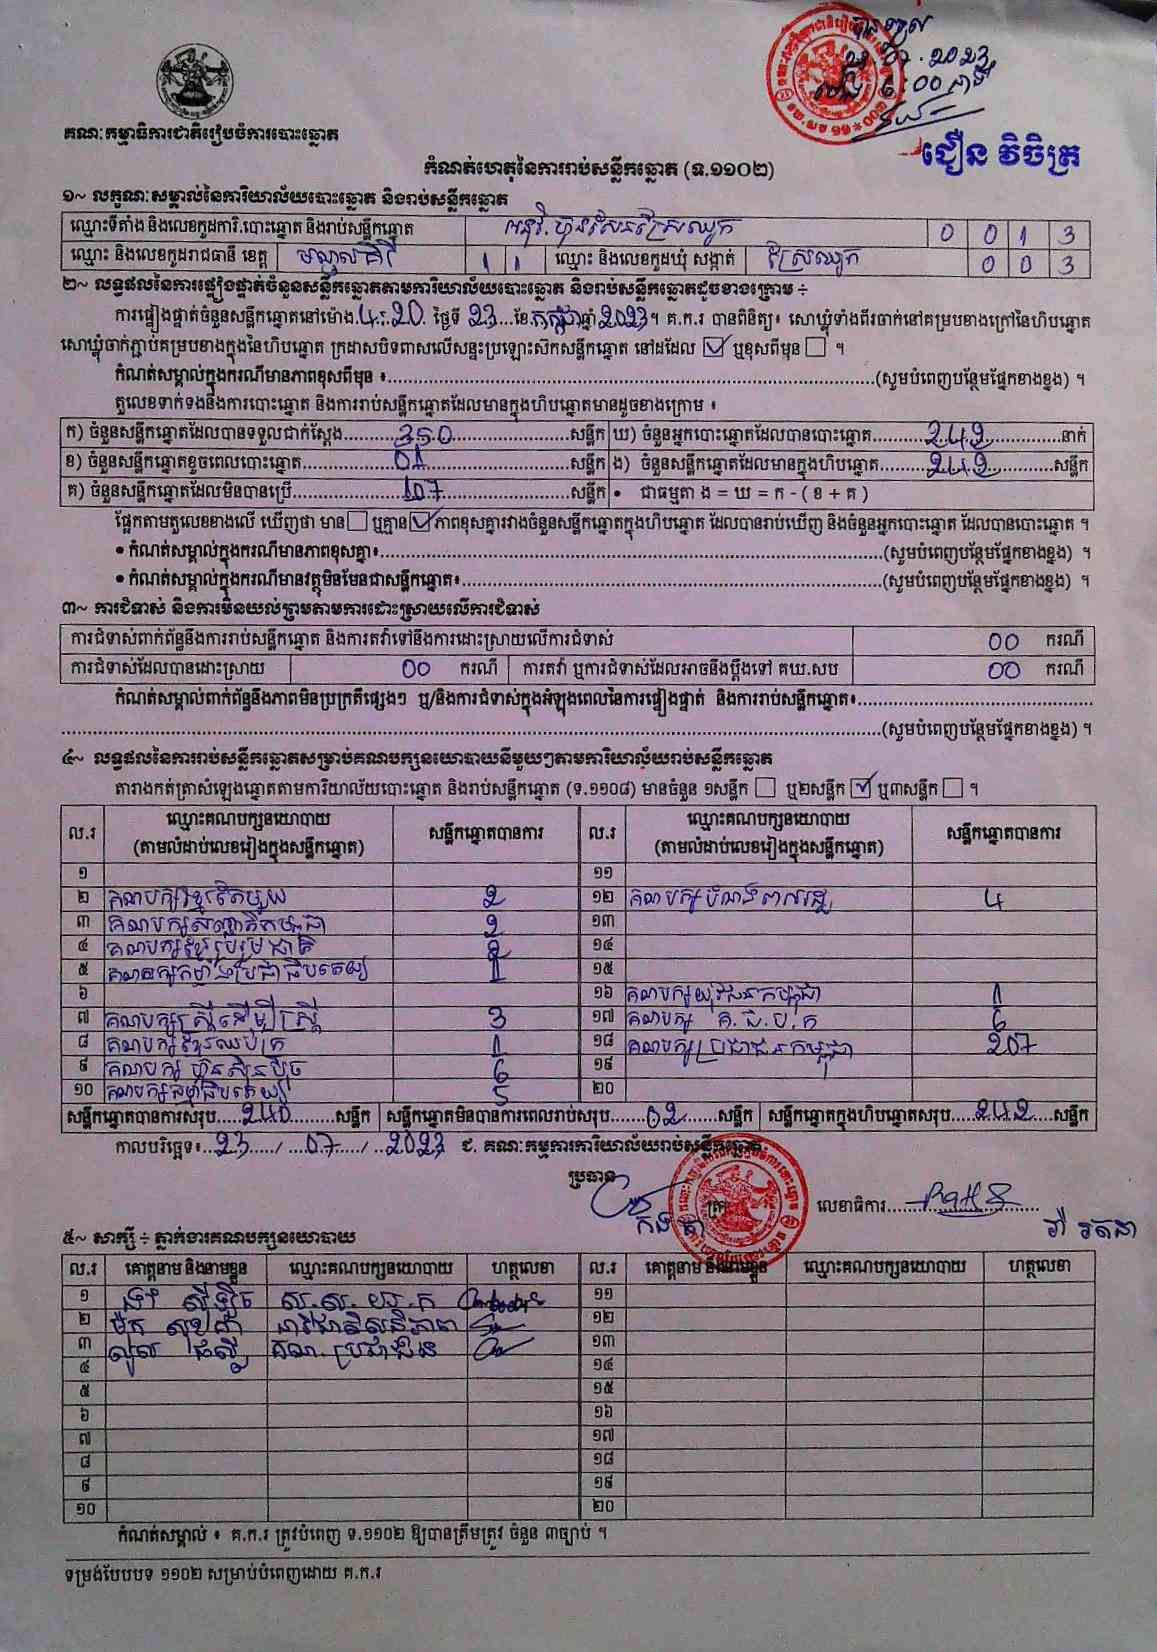 បានទទួល
២៣.០៧.២០២៣
ម៉ោង ៦:០០ នាទី
ជឿន វិចិត្រ
គណៈកម្មាធិការជាតិរៀបចំការបោះឆ្នោត
កំណត់ហេតុនៃការរាប់សន្លឹកឆ្នោត (ទ.១១០២)
១~ លក្ខណៈសម្គាល់នៃការិយាល័យបោះឆ្នោត និងរាប់សន្លឹកឆ្នោត
ឈ្មោះទីតាំង និងលេខកូដការិ.បោះឆ្នោត និងរាប់សន្លឹកឆ្នោត អនុវិ.ហ៊ុនសែនស្រែឈូក 0 0 1 3
ឈ្មោះ និងលេខកូដរាជធានី ខេត្ត មណ្ឌលគិរី 1 1 ឈ្មោះ និងលេខកូដឃុំ សង្កាត់ ស្រែឈូក 0 0 3
២~ លទ្ធផលនៃការផ្ទៀងផ្ទាត់ចំនួនសន្លឹកឆ្នោតតាមការិយាល័យបោះឆ្នោត និងរាប់សន្លឹកឆ្នោតដូចខាងក្រោម ÷
ការផ្ទៀងផ្ទាត់ចំនួនសន្លឹកឆ្នោតនៅម៉ោង.4.:.20. ថ្ងៃទី 23...ខែ.កក្កដា.ឆ្នាំ.2023។ គ.ក.រ បានពិនិត្យ៖ សោឃ្លុំទាំងពីរចាក់នៅគម្របខាងក្រៅនៃហិបឆ្នោត
សោឃ្លុំចាក់ភ្ជាប់គម្របខាងក្នុងនៃហិបឆ្នោត ក្រដាសបិទពាសលើសន្ទះប្រឡោះស៊កសន្លឹកឆ្នោត នៅដដែល ☑ ឬខុសពីមុន ☐ ។
កំណត់សម្គាល់ក្នុងករណីមានភាពខុសពីមុន ៖..........(សូមបំពេញបន្ថែមផ្នែកខាងខ្នង) ។
តួលេខទាក់ទងនឹងការបោះឆ្នោត និងការរាប់សន្លឹកឆ្នោតដែលមានក្នុងហិបឆ្នោតមានដូចខាងក្រោម ៖
ក) ចំនួនសន្លឹកឆ្នោតដែលបានទទួលជាក់ស្តែង..........350..........សន្លឹក ឃ) ចំនួនអ្នកបោះឆ្នោតដែលបានបោះឆ្នោត..........242..........នាក់
ខ) ចំនួនសន្លឹកឆ្នោតខូចពេលបោះឆ្នោត..........01..........សន្លឹក ង) ចំនួនសន្លឹកឆ្នោតដែលមានក្នុងហិបឆ្នោត..........242..........សន្លឹក
គ) ចំនួនសន្លឹកឆ្នោតដែលមិនបានប្រើ..........107..........សន្លឹក • ជាធម្មតា ង = ឃ = ក - ( ខ + គ )
ផ្អែកតាមតួលេខខាងលើ ឃើញថា មាន ☐ ឬគ្មាន ☑ ភាពខុសគ្នារវាងចំនួនសន្លឹកឆ្នោតក្នុងហិបឆ្នោត ដែលបានរាប់ឃើញ និងចំនួនអ្នកបោះឆ្នោត ដែលបានបោះឆ្នោត ។
• កំណត់សម្គាល់ក្នុងករណីមានភាពខុសគ្នា៖..........(សូមបំពេញបន្ថែមផ្នែកខាងខ្នង) ។
• កំណត់សម្គាល់ក្នុងករណីមានវត្ថុមិនមែនជាសន្លឹកឆ្នោត៖..........(សូមបំពេញបន្ថែមផ្នែកខាងខ្នង) ។
៣~ ការជំទាស់ និងការមិនយល់ព្រមតាមការដោះស្រាយលើការជំទាស់
ការជំទាស់ពាក់ព័ន្ធនឹងការរាប់សន្លឹកឆ្នោត និងការតវ៉ាទៅនឹងការដោះស្រាយលើការជំទាស់ 00 ករណី
ការជំទាស់ដែលបានដោះស្រាយ 00 ករណី ការតវ៉ា ឬការជំទាស់ដែលអាចនឹងប្តឹងទៅ គឃ.សប 00 ករណី
កំណត់សម្គាល់ពាក់ព័ន្ធនឹងភាពមិនប្រក្រតីផ្សេងៗ ឬ/និងការជំទាស់ក្នុងអំឡុងពេលនៃការផ្ទៀងផ្ទាត់ និងការរាប់សន្លឹកឆ្នោត៖..........
..........(សូមបំពេញបន្ថែមផ្នែកខាងខ្នង) ។
៤~ លទ្ធផលនៃការរាប់សន្លឹកឆ្នោតសម្រាប់គណបក្សនយោបាយនីមួយៗតាមការិយាល័យរាប់សន្លឹកឆ្នោត
តារាងកត់ត្រាសំឡេងឆ្នោតតាមការិយាល័យបោះឆ្នោត និងរាប់សន្លឹកឆ្នោត (ទ.១១០៨) មានចំនួន ១សន្លឹក ☐ ឬ២សន្លឹក ☑ ឬ៣សន្លឹក ☐ ។
ល.រ ឈ្មោះគណបក្សនយោបាយ (តាមលំដាប់លេខរៀងក្នុងសន្លឹកឆ្នោត) សន្លឹកឆ្នោតបានការ ល.រ ឈ្មោះគណបក្សនយោបាយ (តាមលំដាប់លេខរៀងក្នុងសន្លឹកឆ្នោត) សន្លឹកឆ្នោតបានការ
១ ១១
២ គណបក្សខ្មែរតែមួយ 2 ១២ គណបក្សបំណងពលរដ្ឋ 4
៣ គណបក្សសញ្ជាតិកម្ពុជា 2 ១៣
៤ គណបក្សខ្មែររួបរួមជាតិ 2 ១៤
៥ គណបក្សកម្លាំងប្រជាធិបតេយ្យ 1 ១៥
៦ ១៦ គណបក្សយុវជនកម្ពុជា 1
៧ គណបក្សស្ត្រីដើម្បីស្ត្រី 3 ១៧ គណបក្ស គ.ជ.ប.ក 6
៨ គណបក្សខ្មែរឈប់ក្រ 1 ១៨ គណបក្សប្រជាជនកម្ពុជា 207
៩ គណបក្ស ហ៊្វុនស៊ិនប៉ិច 6 ១៩
១០ គណបក្សធម្មាធិបតេយ្យ 5 ២០
សន្លឹកឆ្នោតបានការសរុប.....240.....សន្លឹក សន្លឹកឆ្នោតមិនបានការពេលរាប់សរុប.....02.....សន្លឹក សន្លឹកឆ្នោតក្នុងហិបឆ្នោតសរុប.....242.....សន្លឹក
កាលបរិច្ឆេទ៖..23...../...07...../..2023 ជ. គណៈកម្មការការិយាល័យរាប់សន្លឹកឆ្នោត
ប្រធាន ត្រា លេខាធិការ..........
កង ជា រ៉ី រតនា
៥~ សាក្សី ÷ ភ្នាក់ងារគណបក្សនយោបាយ
ល.រ គោត្តនាម និងនាមខ្លួន ឈ្មោះគណបក្សនយោបាយ ហត្ថលេខា ល.រ គោត្តនាម និងនាមខ្លួន ឈ្មោះគណបក្សនយោបាយ ហត្ថលេខា
១ ស.ស.យ.ក ១១
២ ម៉ុក ១២
៣ គណ.ប្រជាជន ១៣
៤ ១៤
៥ ១៥
៦ ១៦
៧ ១៧
៨ ១៨
៩ ១៩
១០ ២០
កំណត់សម្គាល់ ៖ គ.ក.រ ត្រូវបំពេញ ទ.១១០២ ឱ្យបានត្រឹមត្រូវ ចំនួន ៣ច្បាប់ ។
ទម្រង់បែបបទ ១១០២ សម្រាប់បំពេញដោយ គ.ក.រ